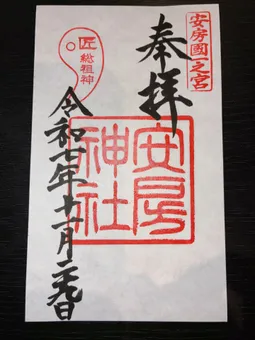 安房國一之宮
奉拝
安房
神社
匠
総祖神
令和七年十一月二十九日